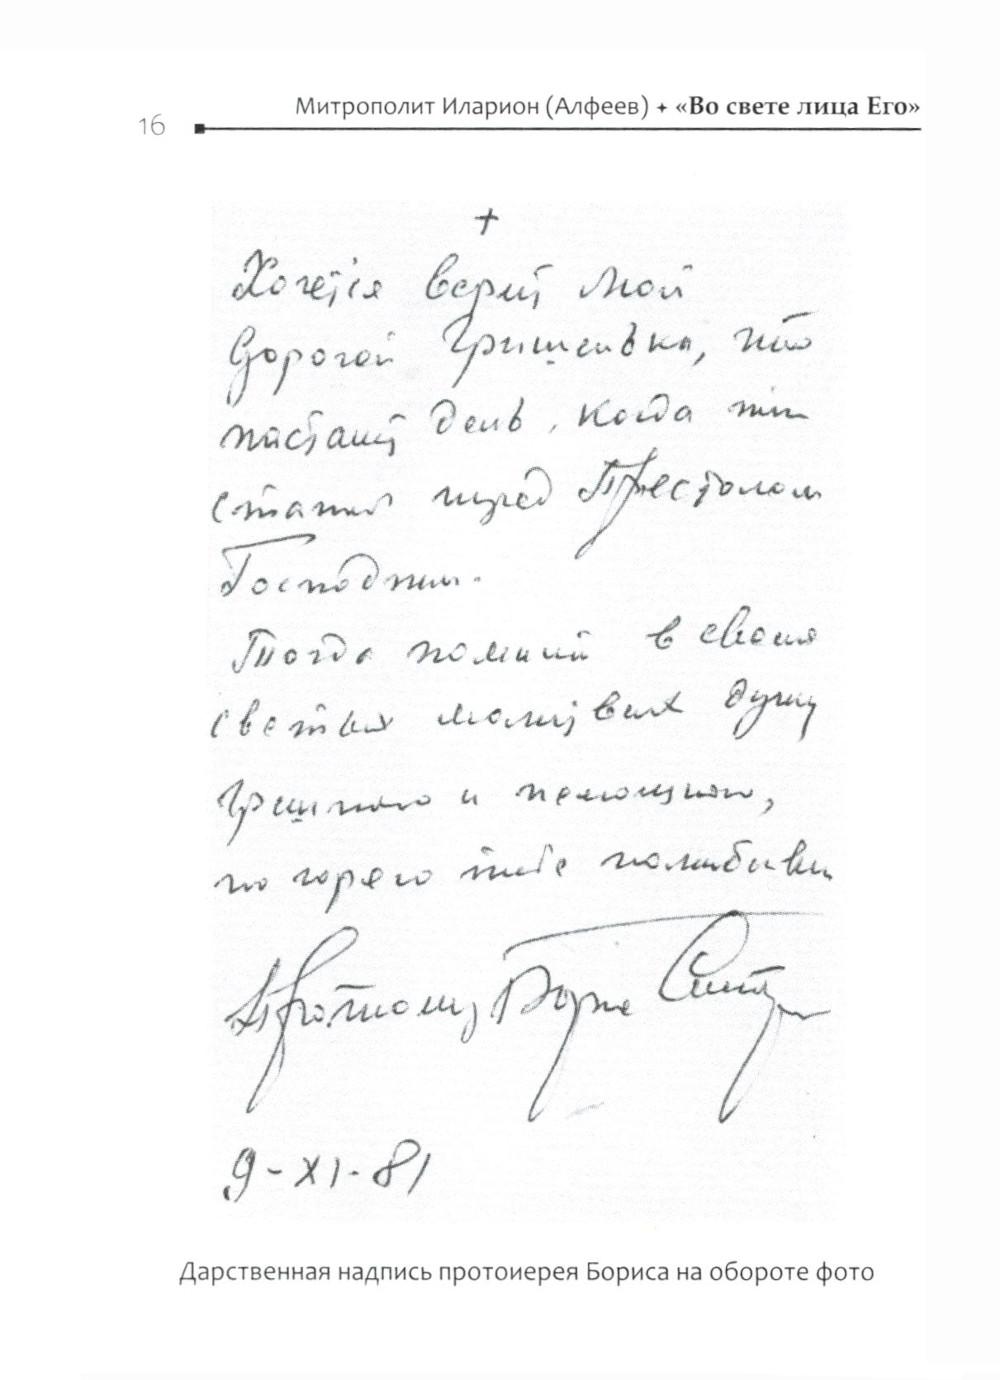 16
Митрополит Иларион (Алфеев) ✦ «Во свете лица Его»
+
Хочется верить мой
дорогой Гришенька, что
настанет день, когда ты
станешь перед Престолом
Господним.
Тогда помяни в своих
святых молитвах душу
грешного и немощного,
но горячо тебя полюбивш
Протоиерей Борис
9-XI-81
Дарственная надпись протоиерея Бориса на обороте фото